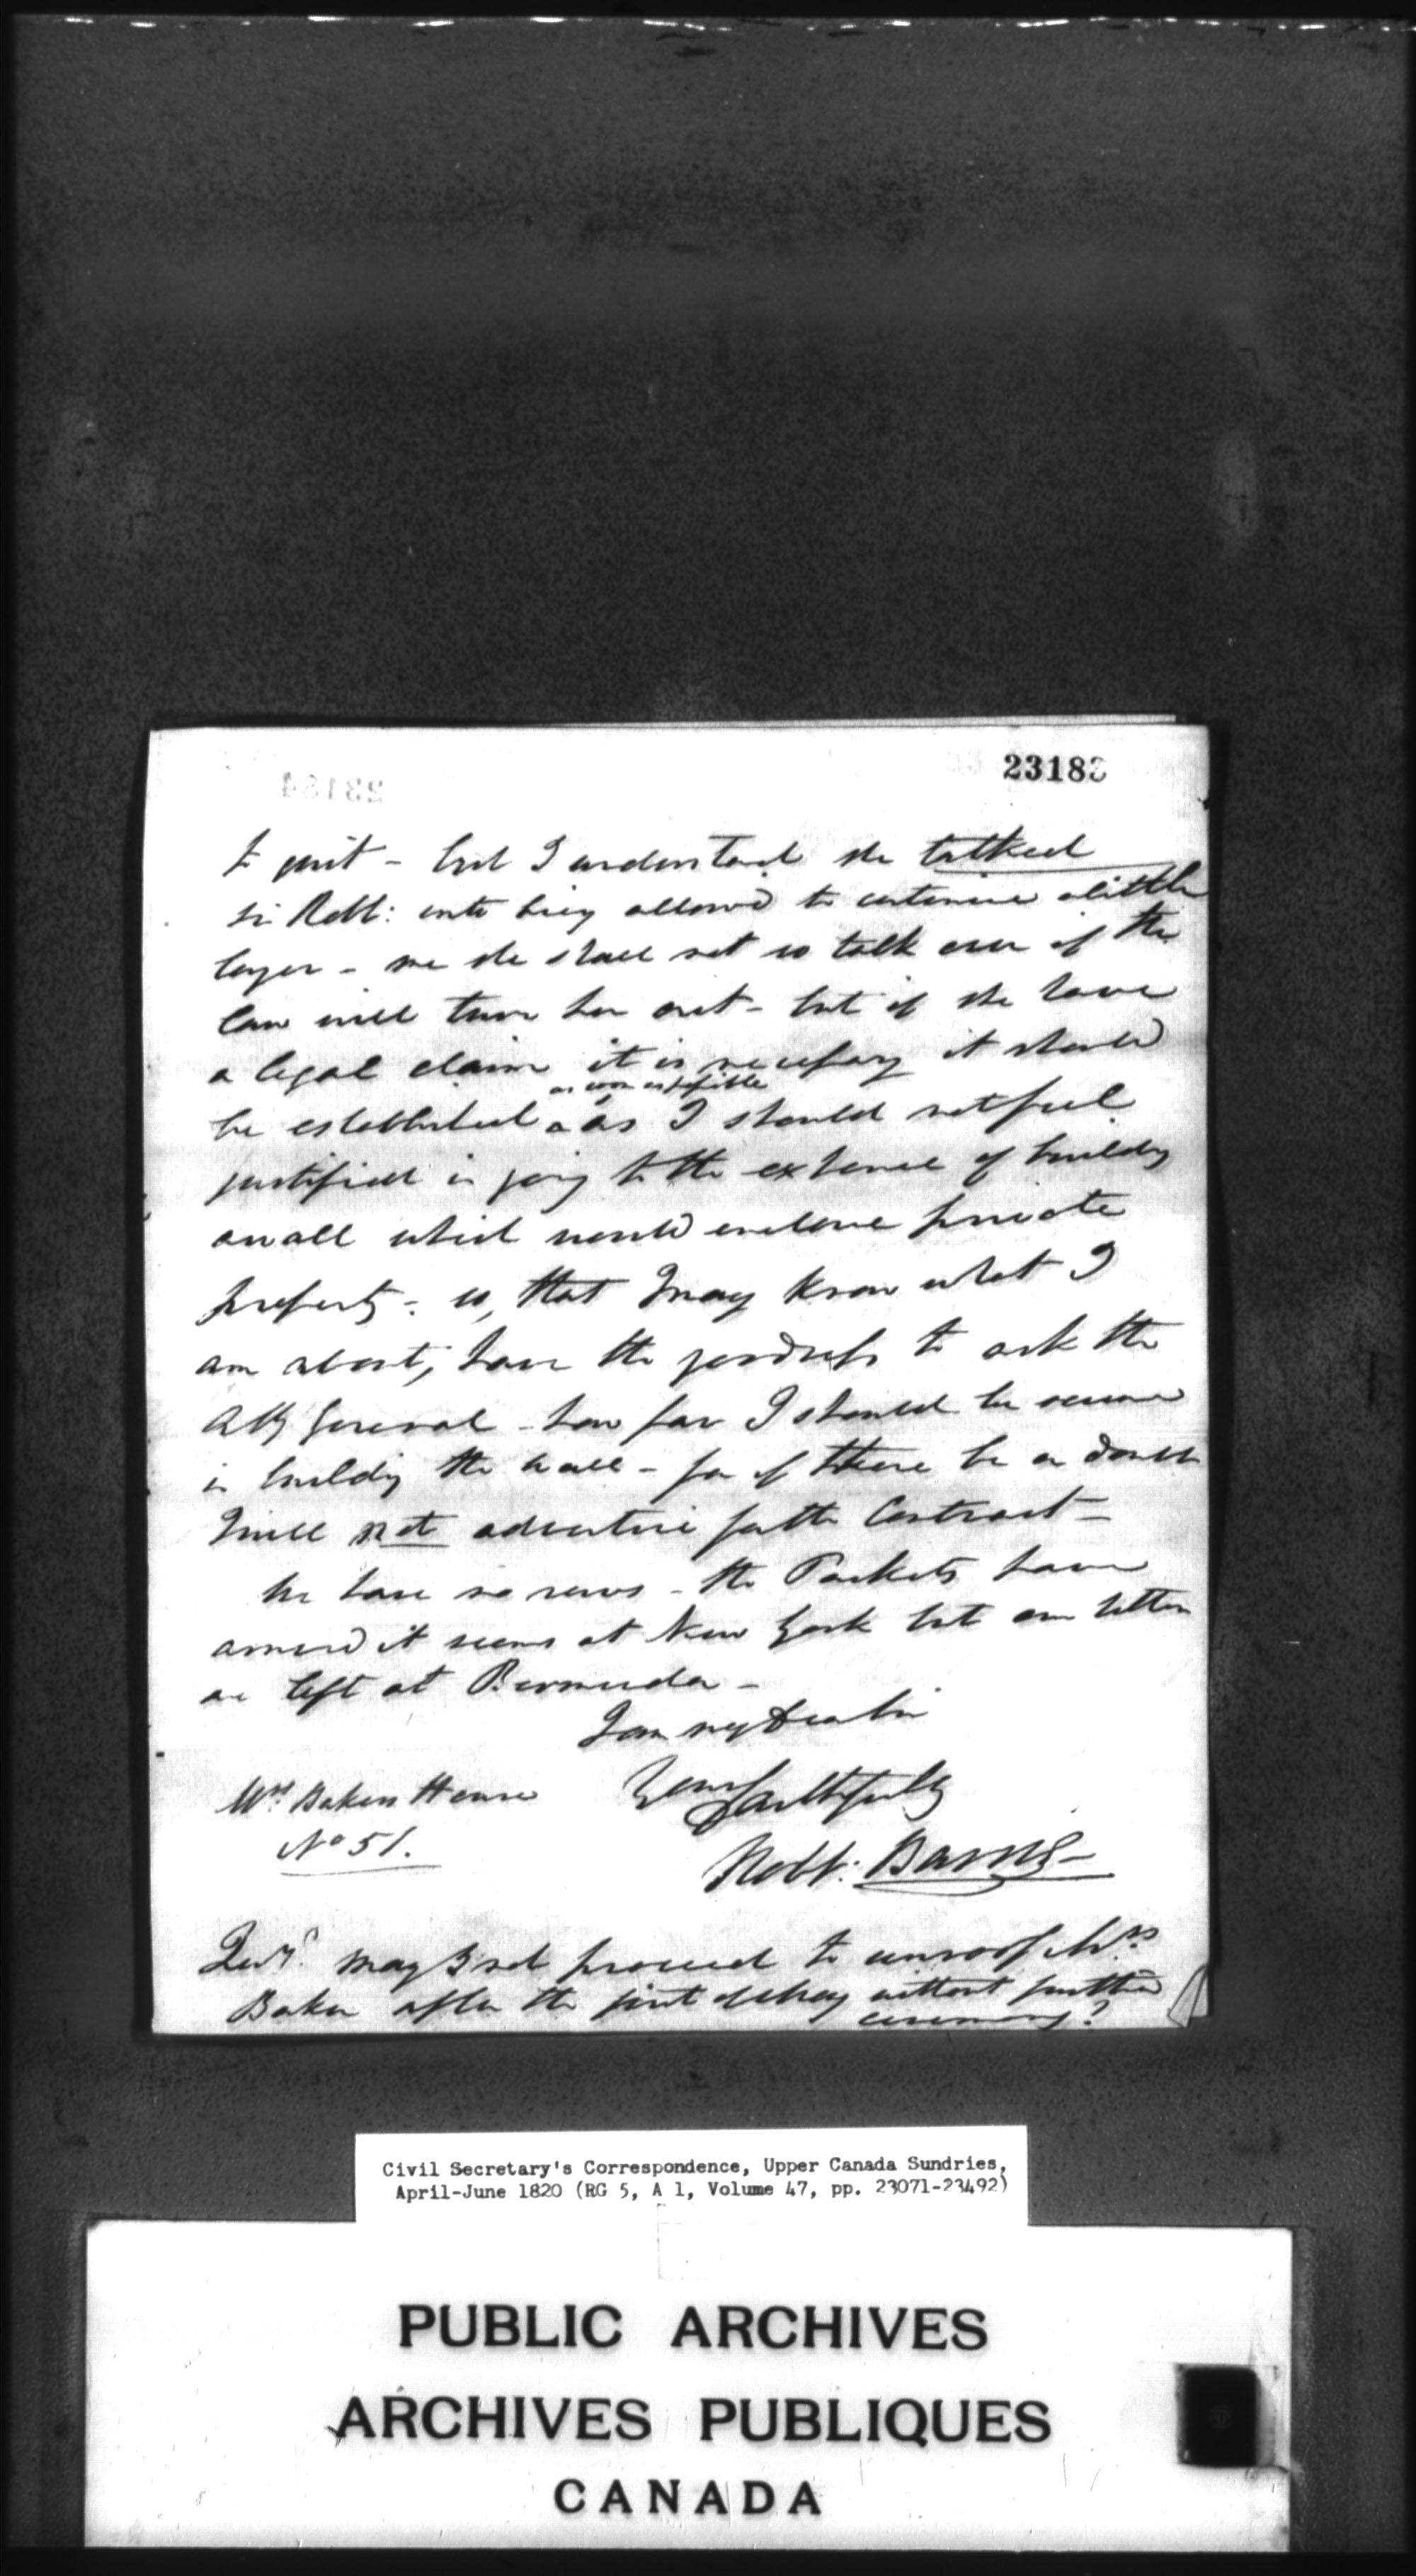 23183
to quit - but I understand she talked
Sir Robt: into being allowed to continue a little
longer - me she shall not so talk over if the
law will turn her out - but if she have
a legal claim it is necessary it should
as soon as possible
be established as I should not feel
justified in going to the expence of building
a wall which would enclose private
property - so, that I may know what I
am about, have the goodness to ask the
Atty General - how far I should be secure
in building the wall - for if there be a doubt
I will not adventure for the Contract -
We have no news - the Packets have
arrived it seems at New York but our letters
are left at Bermuda -
I am my dear Sir
Yours faithfully
Mrs Bakers House
No 51.
Robt:
may I not proceed to unroof Mrs
Baker after the first of May without further
ceremony?
Civil Secretary's Correspondence, Upper Canada Sundries,
April-June 1820 (RG 5, A 1, Volume 47, pp. 23071-23492)
PUBLIC ARCHIVES
ARCHIVES PUBLIQUES
CANADA